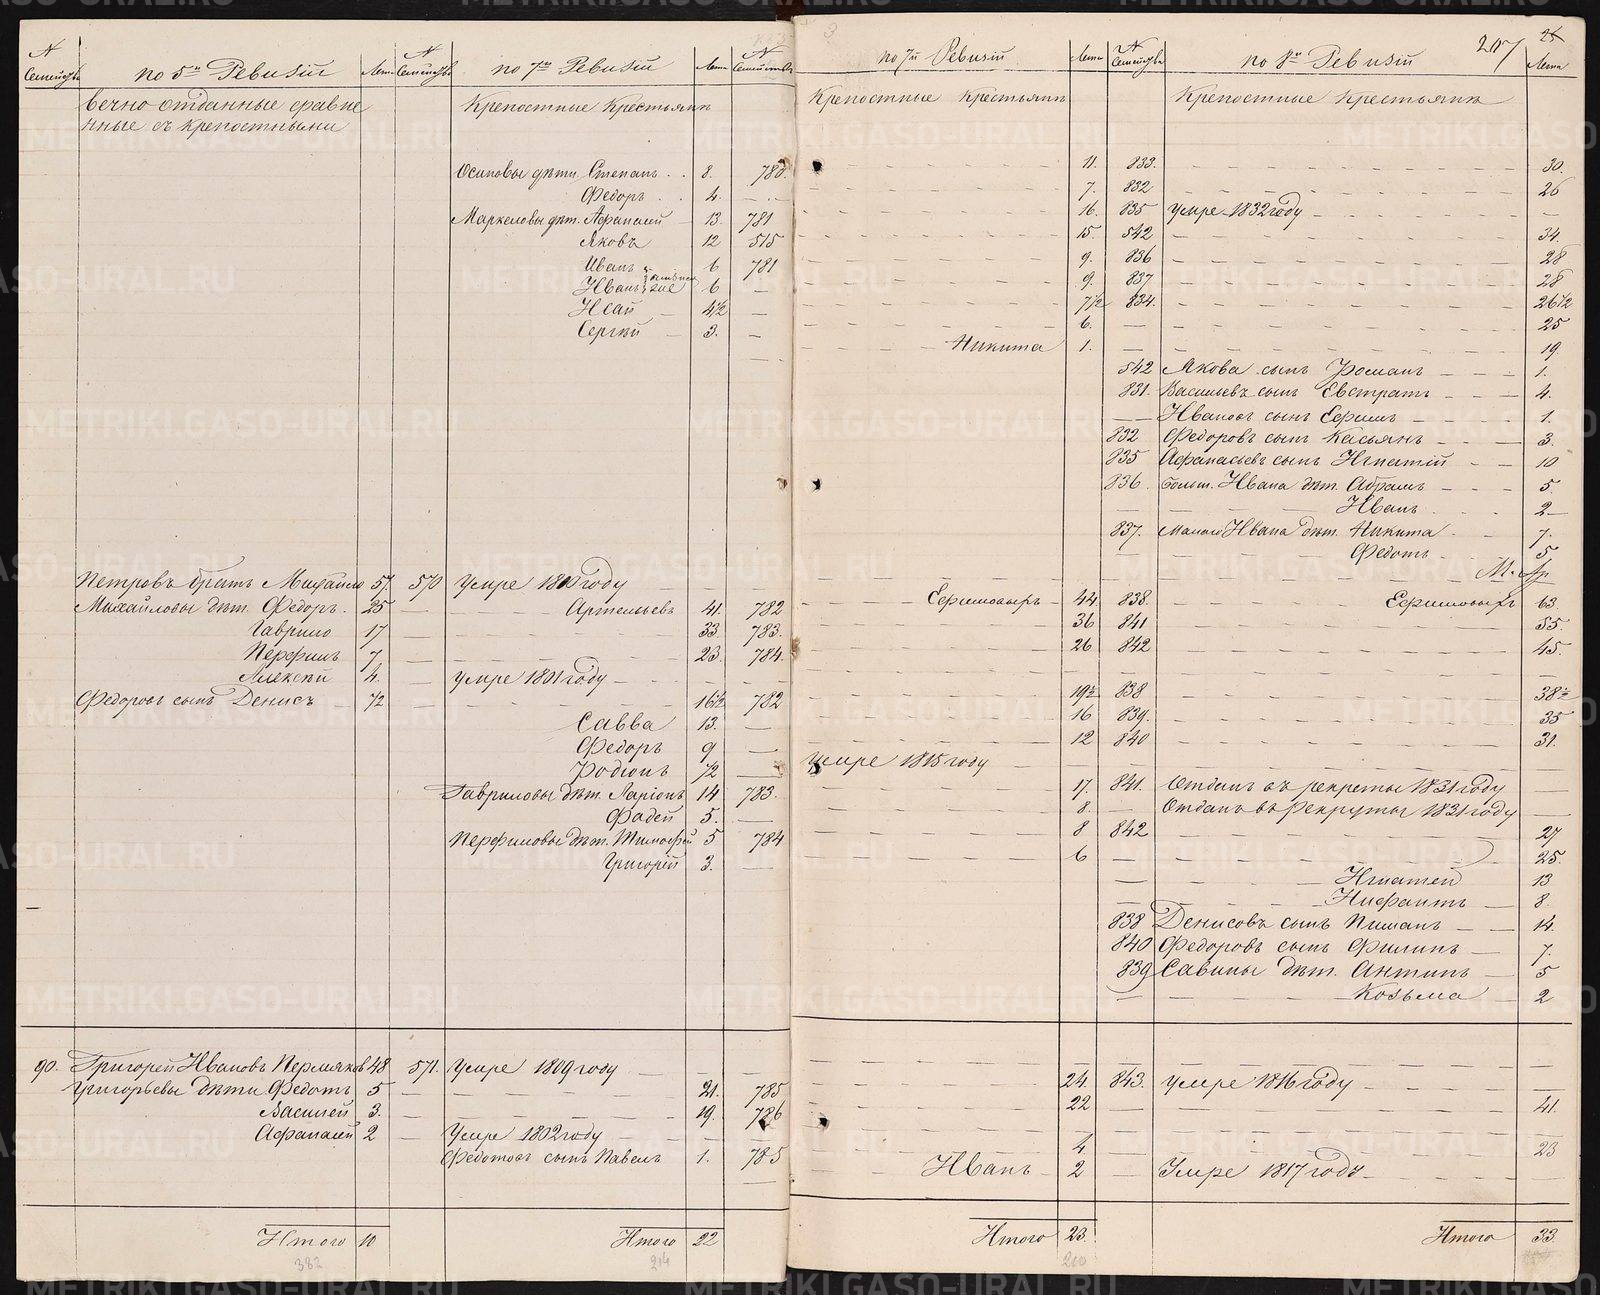 № Семейства | по 5й Ревизіи | Лета | № Семейства | по 7й Ревизіи | Лета | № Семейства
вечно отданные сравне | Крепостные Крестьяня
нные съ крепостными
Осиповы дѣти Степанъ 8. 780.
Федоръ 4.
Маркеловы дѣт. Афанасій 13. 781
Яковъ 12 515
Иванъ 6 781
Иванъ 6
Исай 4½
Сергѣй 3.
Петровъ братъ Михайло 57. 570 умре 1800 году
Михайловы дѣт. Федоръ. 25 Артемьевъ 41. 782
Гаврило 17 33. 783.
Перфилъ 7 23. 784.
Алексѣй 4. умре 1801 году
Федоровъ сынъ Денисъ ½ 16½ 782
Савва 13.
Федоръ 9
Родіонъ ½
Гавриловы дѣт. Ларіонъ 14 783.
Фадей 5.
Перфиловы дѣт. Тимофѣй 5 784
Григорій 3.
90. Григорей Ивановъ Пермяковъ 48 571. Умре 1809 году
Григорьевы дѣти Федотъ 5 21. 785
Василей 3. 19. 786
Афанасій 2 Умре 1802 году
Федотовъ сынъ Павелъ 1. 785
Итого 10 Итого 22
382 214
207 25
по 7й Ревизіи | Лета | № Семейства | по 8й Ревизіи | Лета
Крепостные крестьяня | Крепостные Крестьяня
11. 833. 30.
7. 832 26
16. 835 умре 1832 году
15. 542 34.
9. 836 28
9. 837 28
7½ 834. 26½
6. 25
Никита 1. 19.
542 Якова сынъ Романъ 1.
831. Васильевъ сынъ Евстратъ 4.
Ивановъ сынъ Ефимъ 1.
832 Федоровъ сынъ Касьянъ 3.
835 Афанасьевъ сынъ Игнатій 10
836. больш. Ивана дѣт. Абрамъ 5.
Иванъ 2
837. малого Ивана дѣт. Никита 7.
Федотъ 5
Ефимовыхъ 44. 838. Ефимовыхъ 63.
36 841 55.
26 842 45.
19½ 838 38½
16 839. 35
12 840 31.
умре 1815 году
17. 841. Отданъ въ рекруты 1831 году
8. Отданъ въ Рекруты 1831 году
8 842 27
6 25.
Игнатей 13
Нифантъ 8.
838 Денисовъ сынъ Пиманъ 14.
840 Федоровъ сынъ Филипъ 7.
839 Савины дѣт. Антипъ 5
Козьма 2
24. 843. умре 1816 году
22 41.
4 23
Иванъ 2 Умре 1817 году
Итого 23. Итого 33.
210
METRIKI.GASO-URAL.RU